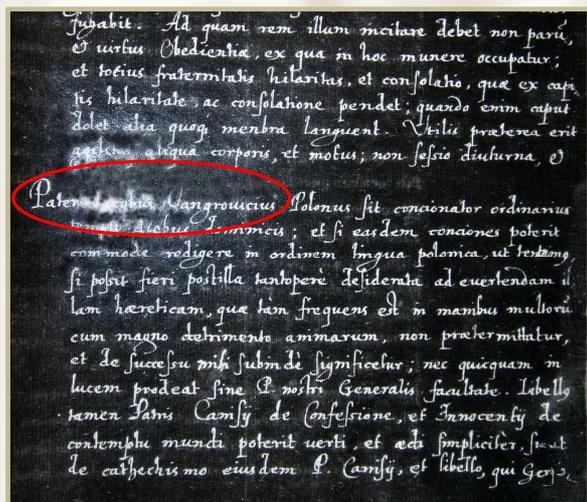 fugabit. Ad quam rem illum incitare debet non parũ,
et uirtus Obedientiæ, ex qua in hoc munere occupatur;
et totius fraternitatis hilaritas, et consolatio, quæ ex capi
tis hilaritate ac consolatione pendet; quando enim caput
dolet alia quoq; menbra languent. Vtilis præterea erit
agitatio aliqua corporis, et motus; non sessio diuturna, et
Pater Jacobus Vangrouicius Polonus sit concionator ordinarius
diebus Dominicis; et si easdem conciones poterit
commode redigere in ordinem lingua polonica, ut
si possit fieri postilla tantoperè desiderata ad euertendam il
lam hæreticam, quæ tàm frequens est in manibus multorũ
cum magno detrimento animarum, non prætermittatur,
et de successu mihi subindè significetur; nec quicquam in
lucem prodeat sine P. nostri Generalis facultate. Libello
tamen Patris Canisij de Confessione, et Innocentij de
contemptu mundi poterit uerti, et ædi simpliciter, sicut
de cathechismo eiusdem P. Canisij, et libello, qui